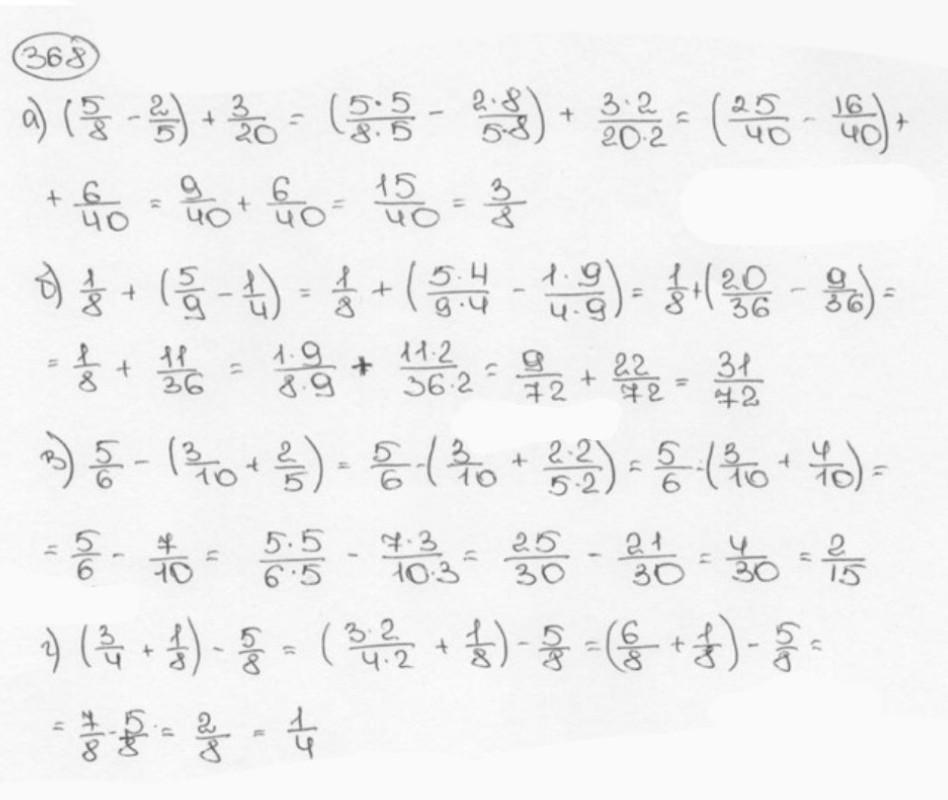 368
а) (5/8 - 2/5) + 3/20 = (5·5/8·5 - 2·8/5·8) + 3·2/20·2 = (25/40 - 16/40) +
+ 6/40 = 9/40 + 6/40 = 15/40 = 3/8
б) 1/8 + (5/9 - 1/4) = 1/8 + (5·4/9·4 - 1·9/4·9) = 1/8 + (20/36 - 9/36) =
= 1/8 + 11/36 = 1·9/8·9 + 11·2/36·2 = 9/72 + 22/72 = 31/72
в) 5/6 - (3/10 + 2/5) = 5/6 - (3/10 + 2·2/5·2) = 5/6 - (3/10 + 4/10) =
= 5/6 - 7/10 = 5·5/6·5 - 7·3/10·3 = 25/30 - 21/30 = 4/30 = 2/15
г) (3/4 + 1/8) - 5/8 = (3·2/4·2 + 1/8) - 5/8 = (6/8 + 1/8) - 5/8 =
= 7/8 - 5/8 = 2/8 = 1/4